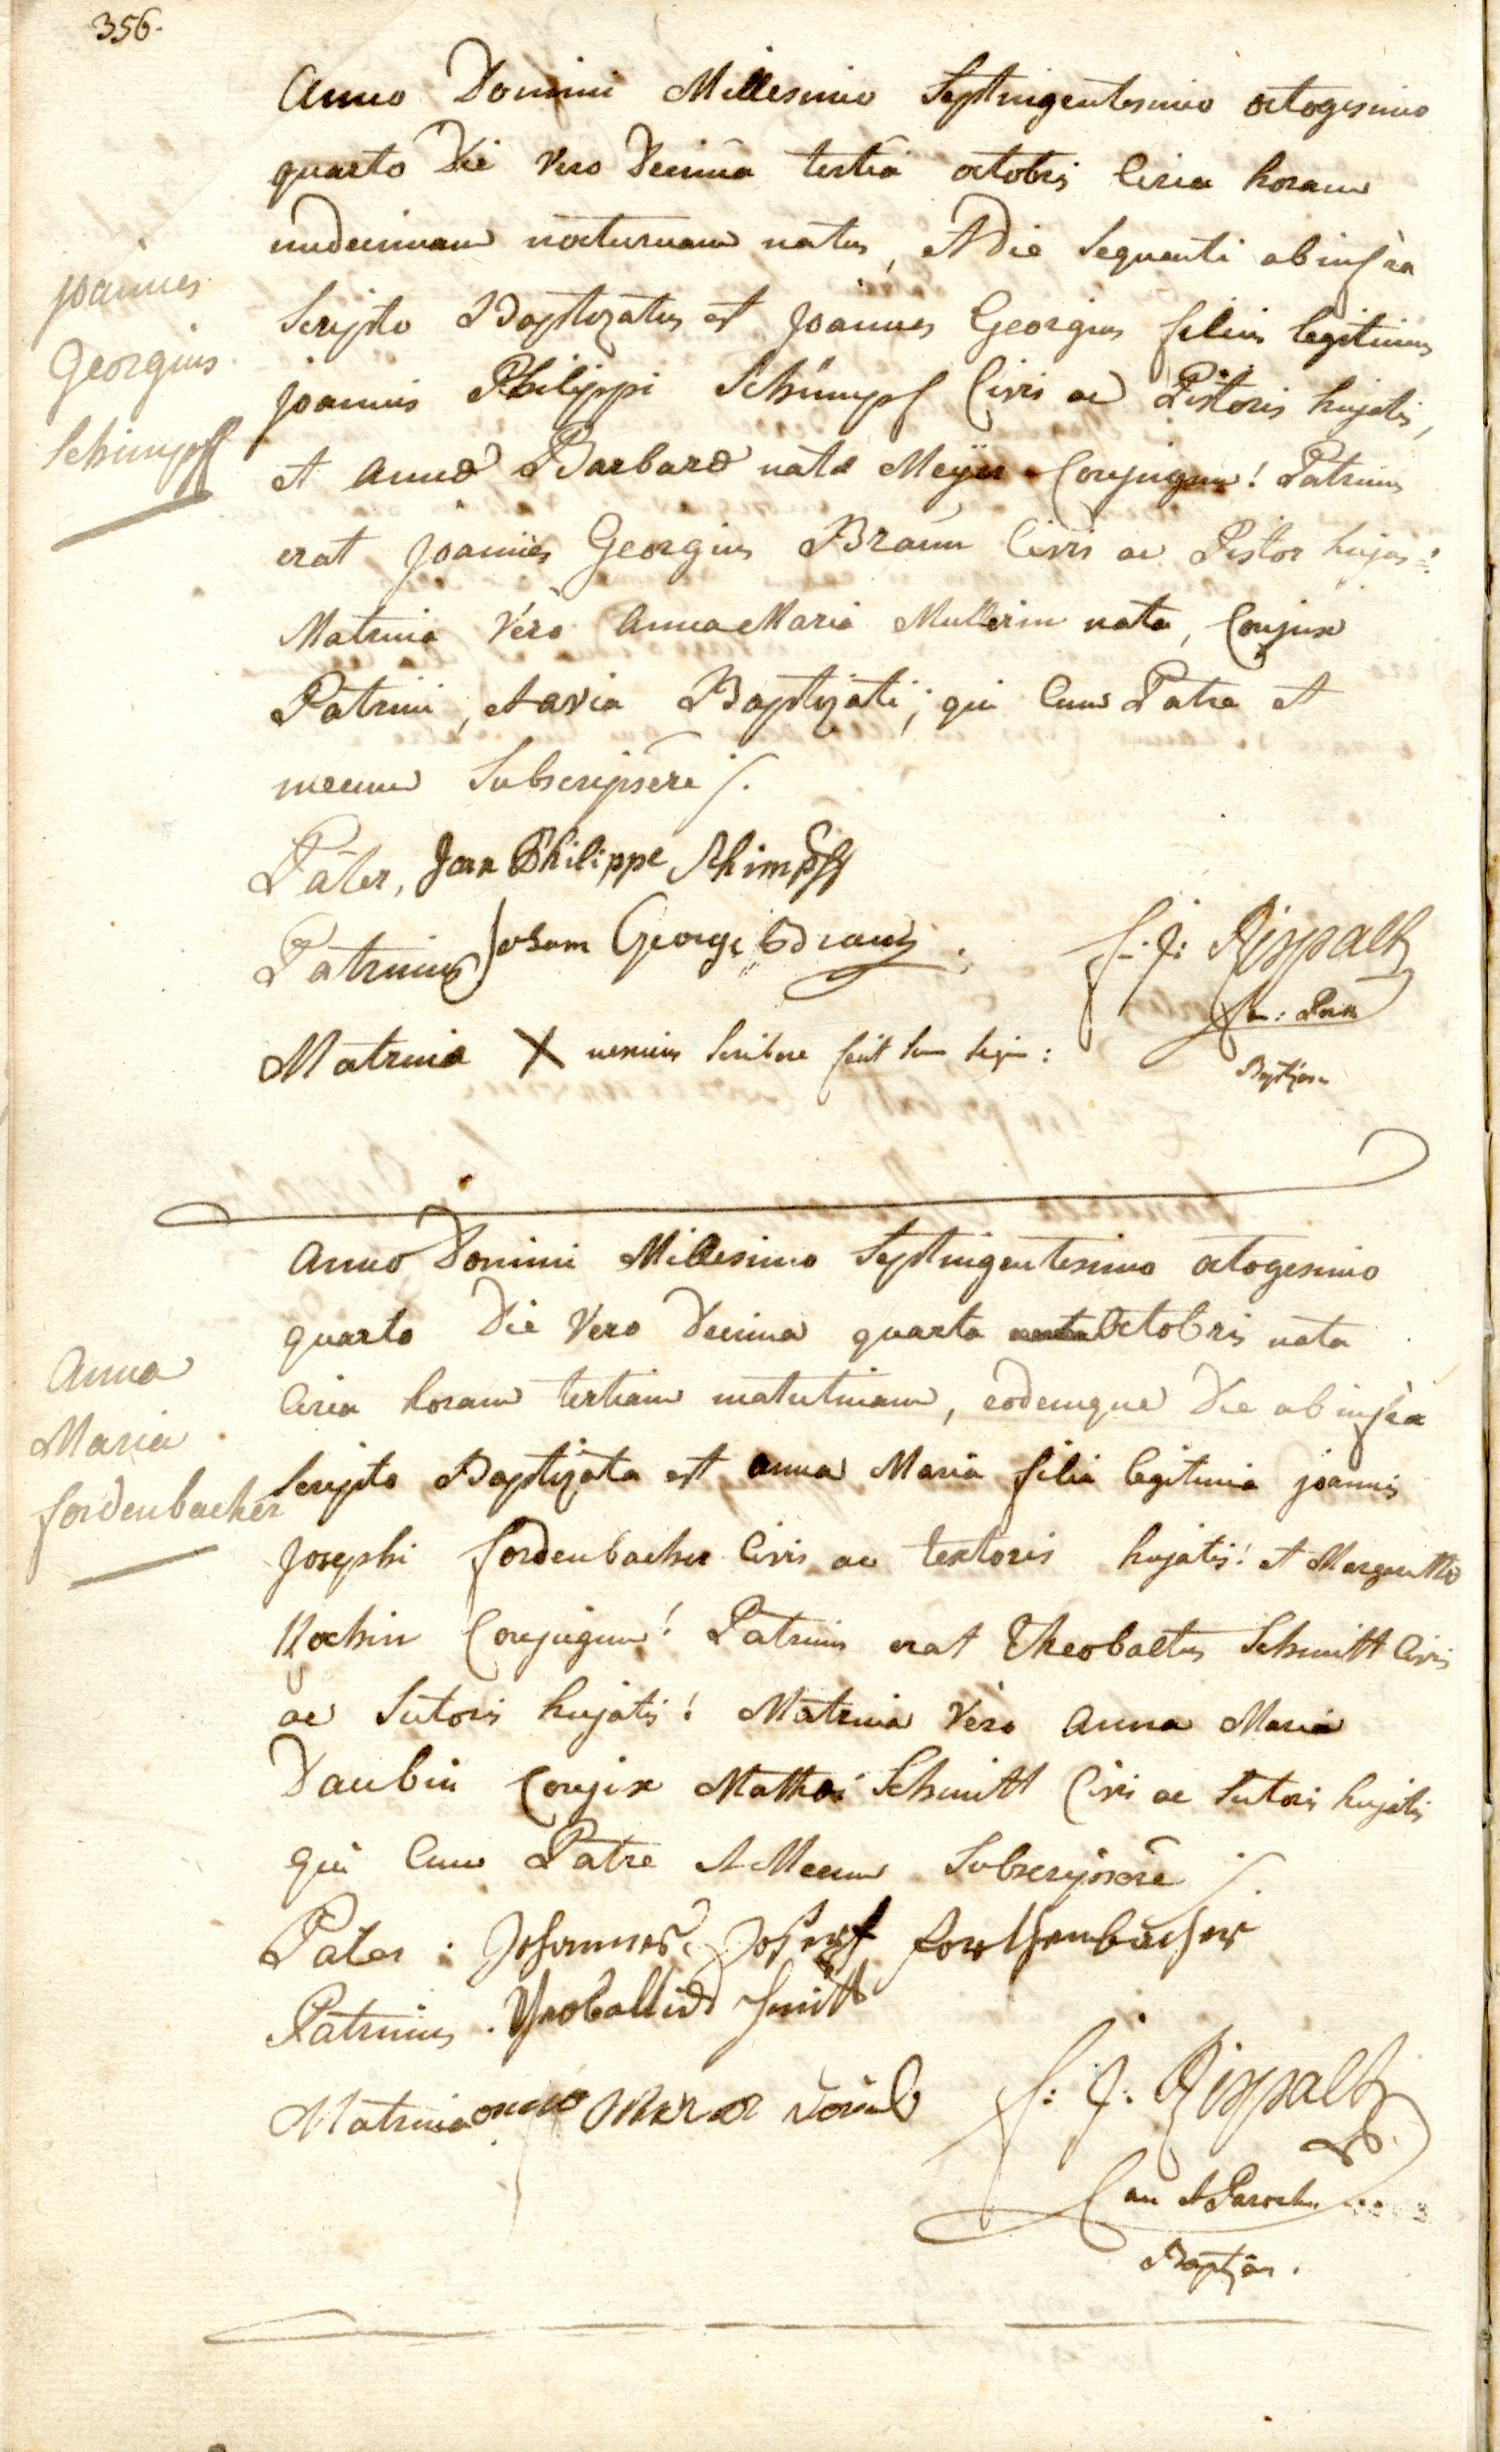 356.
Anno Domini Millesimo Septingentesimo octogesimo
quarto Die Vero Decima tertia octobris Circa horam
undecimam nocturnam natus, et Die Sequenti ab infra
Joannes
Georgius
Schimpff
Scripto Baptizatus est Joannes Georgius filius legitimus
joannis Philippi Schimpf Civis ac Pistoris hujatis,
et Annæ Barbaræ natæ Meÿer Conjugum! Patrinus
erat joannes Georgius Braun Civis ac Pistor hujas!
Matrina Vero Anna Maria Mullerin nata, Conjux
Patrini, et avia Baptizati; qui Cum Patre et
mecum Subscripsere ./.
Pater, Jean Philippe Schimpff
Patrinus Johann Georg Braun
Matrina X Scribere
F. J. Rispalt
Baptizans
Anno Domini Millesimo Septingentesimo octogesimo
quarto Die Vero Decima quarta Octobris nata
Circa horam tertiam matutinam, eodemque Die ab infra
Anna
Maria
fordenbacher
Scripto Baptizata est anna Maria filia legitima joannis
Josephi fordenbacher Civis ac textoris hujatis! et Margarethæ
Kochin Conjugum! Patrinus erat Theobaltus Schmitt Civis
ac Sutoris hujatis! Matrina Vero Anna Maria
Daubin Conjix Mathæi Schmitt Civis ac Sutoris hujatis
qui Cum Patre et Mecum Subscripsere ./.
Pater : Johannes Josepf
Patrinus . Theobalt Schmitt
Matrina
F. J. Rispalt
Can et Parochus
Baptzans.